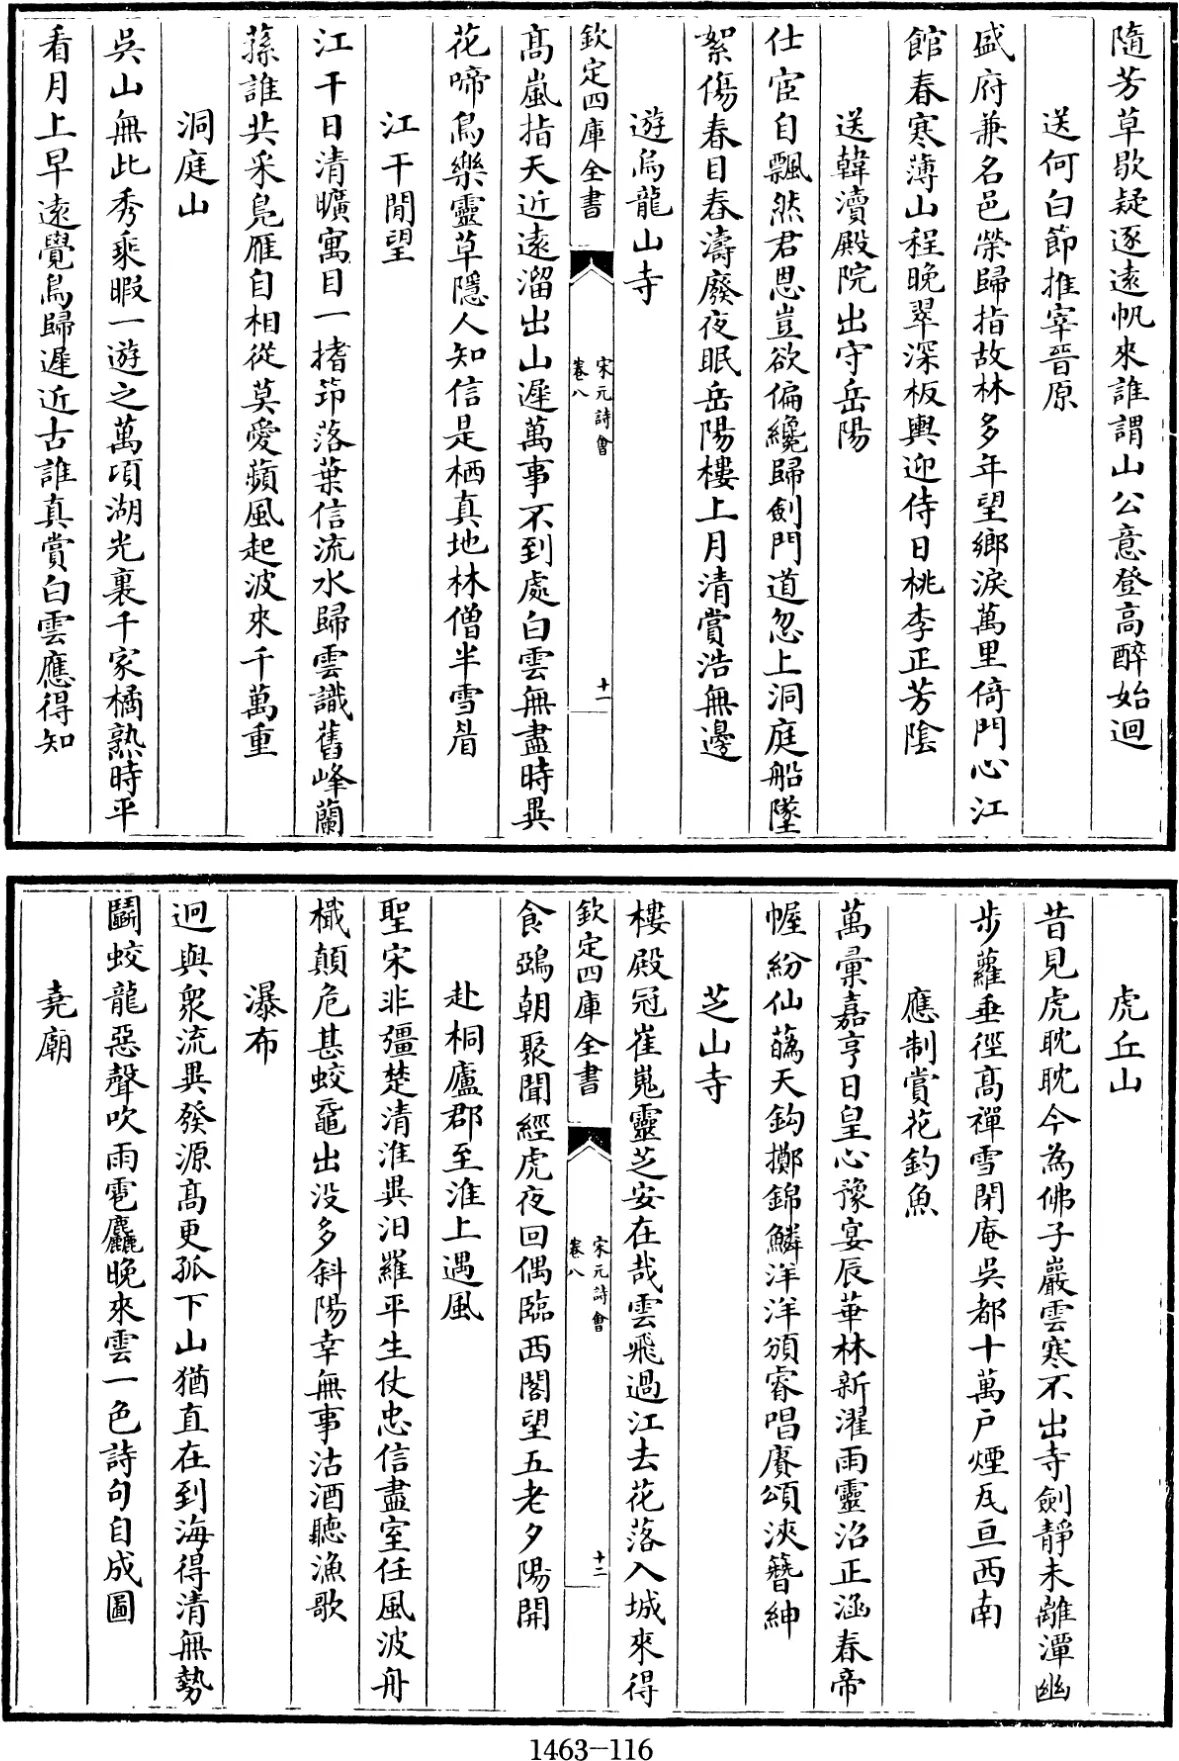 隨芳草歇疑逐遠帆來誰謂山公意登高醉始迴
送何白節推宰晉原
盛府兼名邑榮歸指故林多年望鄉淚萬里倚門心江
館春寒薄山程晚翠深板輿迎侍日桃李正芳陰
送韓瀆殿院出守岳陽
仕宦自飄然君恩豈欲偏纔歸劍門道忽上洞庭船墜
絮傷春目春濤廢夜眠岳陽樓上月清賞浩無邊
遊烏龍山寺
欽定四庫全書
宋元詩會
卷八
十一
髙嵐指天近遠溜出山遲萬事不到處白雲無盡時異
花啼鳥樂靈草隱人知信是栖真地林僧半雪眉
江干閒望
江干日清曠寓目一揩笻落葉信流水歸雲識舊峰蘭
蓀誰共采鳧雁自相從莫愛蘋風起波來千萬重
洞庭山
吳山無此秀乘暇一遊之萬頃湖光裏千家橘熟時平
看月上早遠覺鳥歸遲近古誰真賞白雲應得知
虎丘山
昔見虎眈眈今為佛子巖雲寒不出寺劍靜未離潭幽
步蘿垂徑髙禪雪閉庵吳都十萬戶煙瓦亘西南
應制賞花釣魚
萬彚嘉亨日皇心豫宴辰華林新濯雨靈沼正涵春帝
幄紛仙蘤天鈎擲錦鱗洋洋頒睿唱賡頌浹簪紳
芝山寺
樓殿冠崔嵬靈芝安在哉雲飛過江去花落入城來得
欽定四庫全書
宋元詩會
卷八
十二
食鵶朝聚聞經虎夜回偶臨西閣望五老夕陽開
赴桐廬郡至淮上遇風
聖宋非彊楚清淮異汨羅平生仗忠信盡室任風波舟
檝顛危甚蛟黿出没多斜陽幸無事沽酒聽漁歌
瀑布
迥與衆流異發源髙更孤下山猶直在到海得清無勢
鬬蛟龍惡聲吹雨雹麤晚來雲一色詩句自成圖
堯廟
1463—116